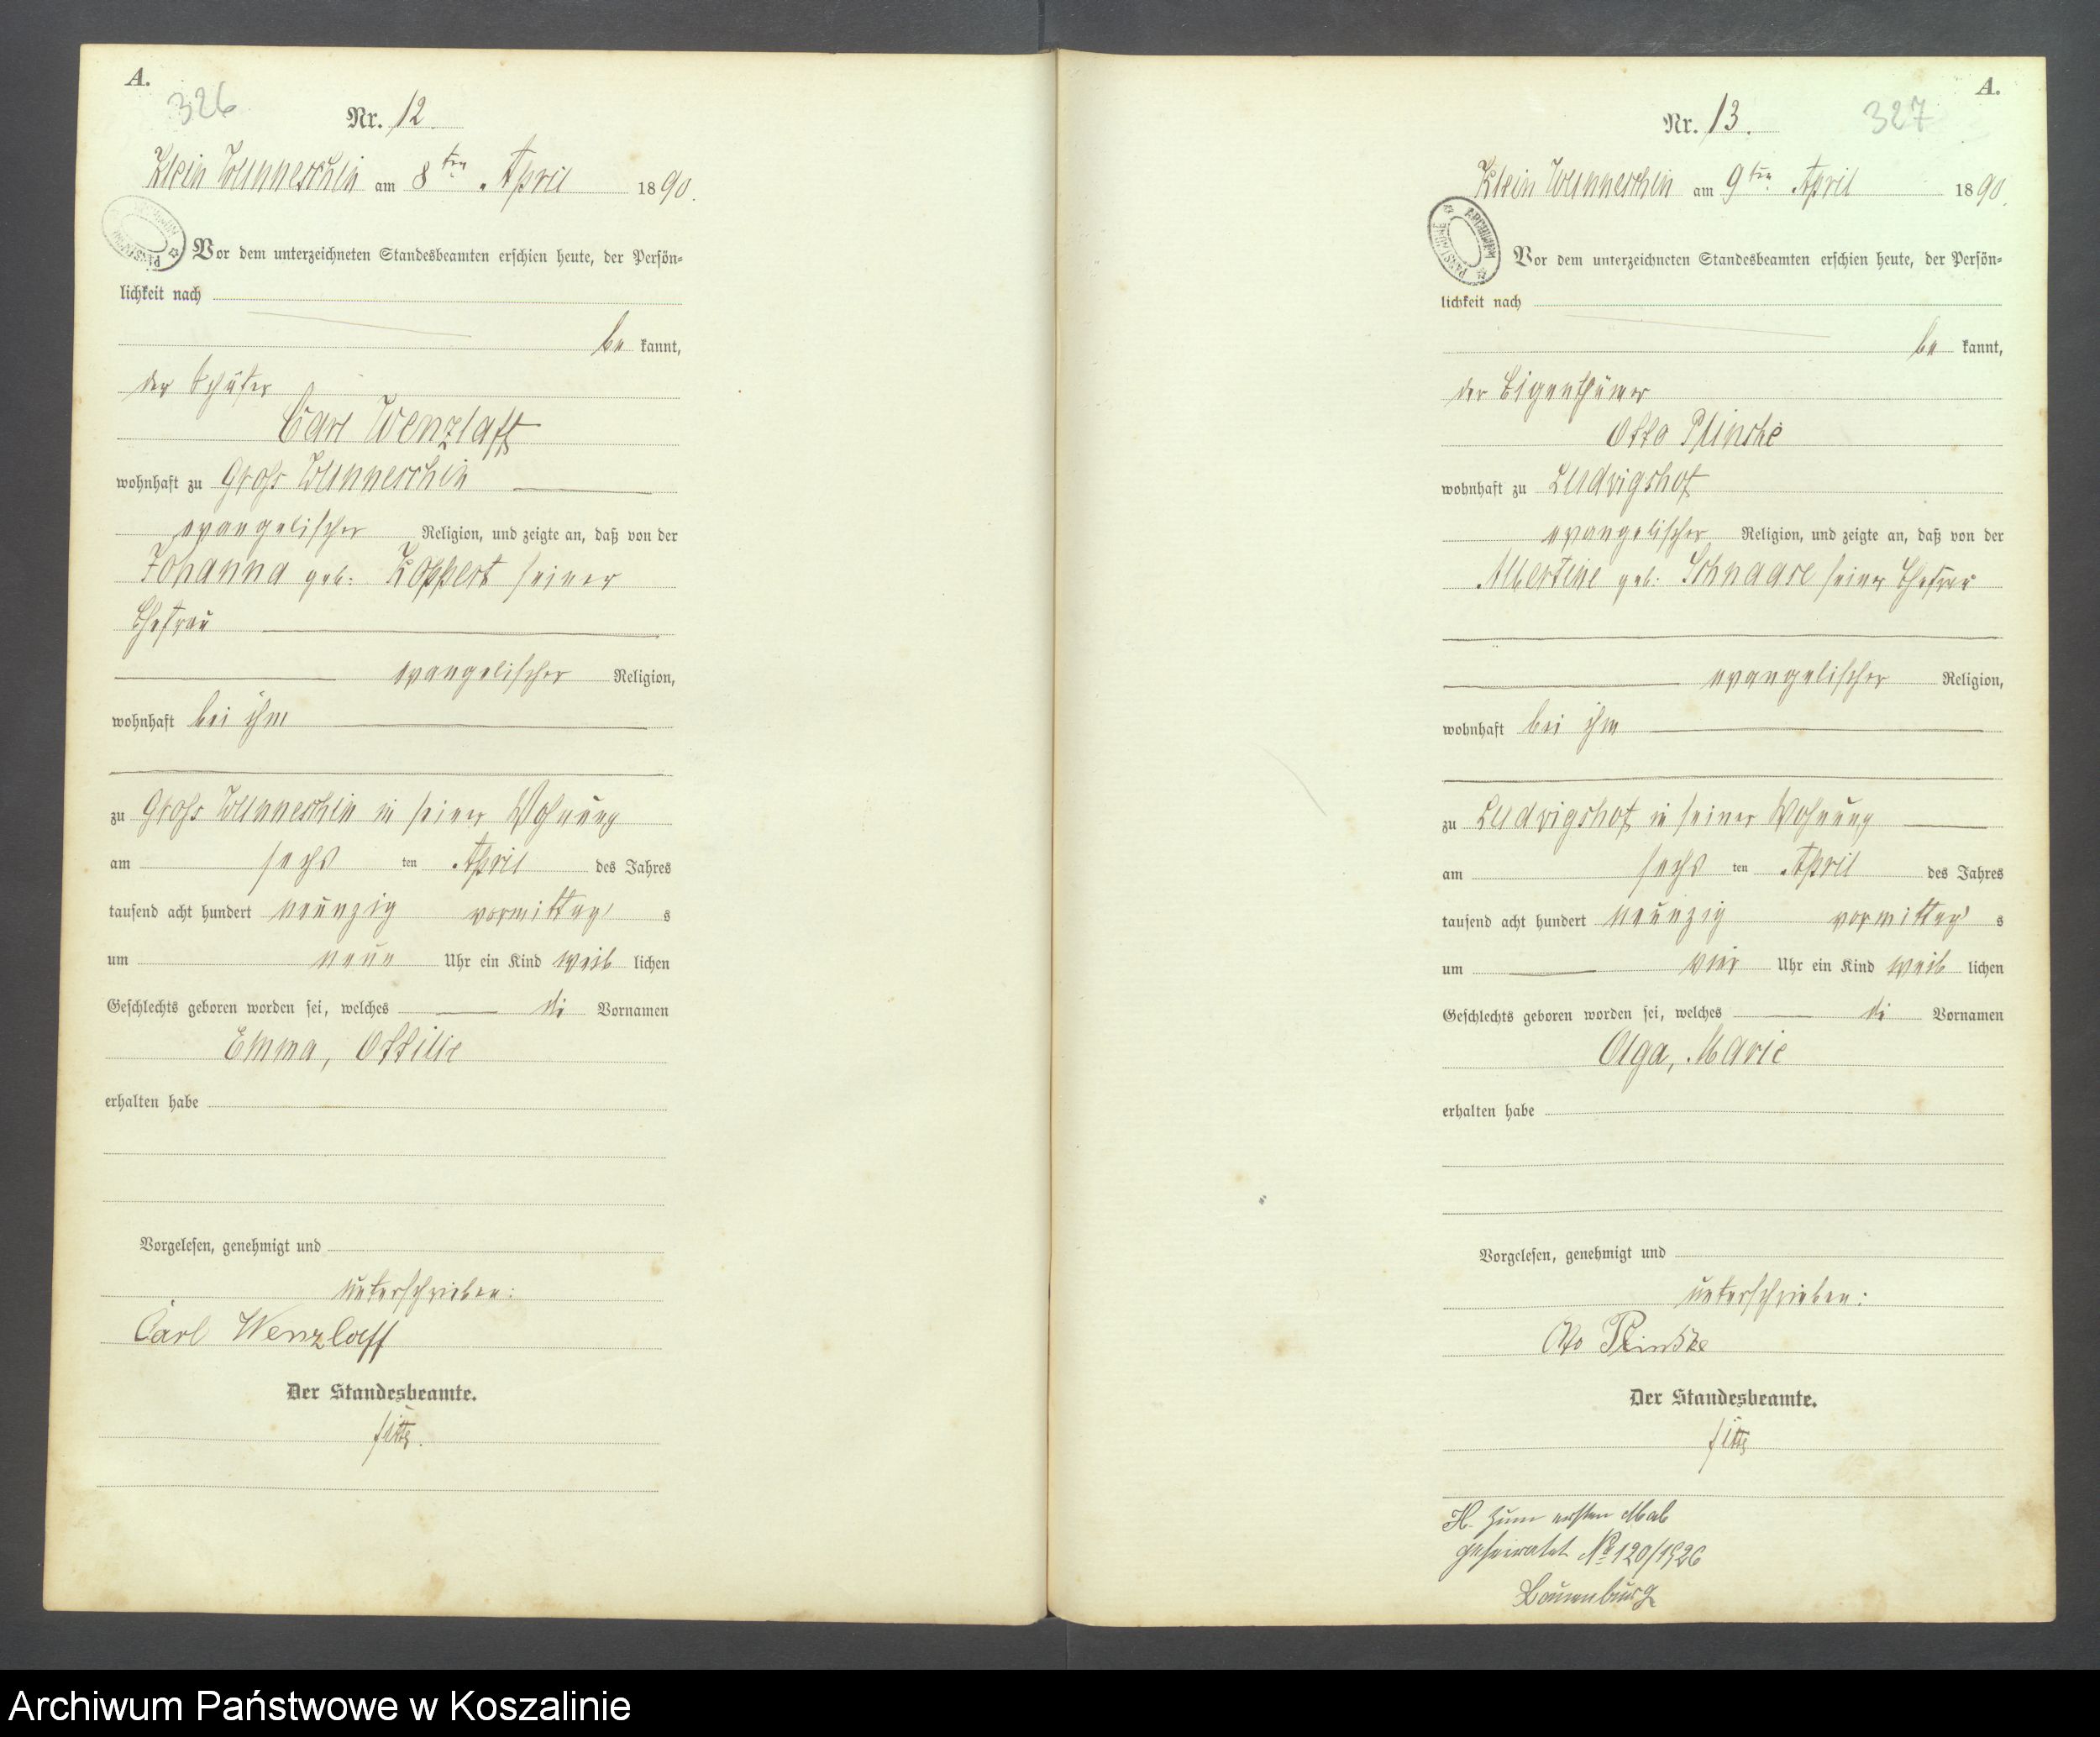 A.
326
Nr. 12.
Klein Wunneschin am 8ten April 1890.
Vor dem unterzeichneten Standesbeamten erschien heute, der Persön-
lichkeit nach
be kannt,
der Schäfer
Carl Wenzlaff
wohnhaft zu Groß Wunneschin
evangelischer Religion, und zeigte an, daß von der
Johanna geb: Koppert seiner
Ehefrau
evangelischer Religion,
wohnhaft bei ihm
zu Groß Wunneschin in seiner Wohnung
am sechs ten April des Jahres
tausend acht hundert neunzig vormittag s
um neun Uhr ein Kind weib lichen
Geschlechts geboren worden sei, welches di Vornamen
Emma, Ottilie
erhalten habe
Vorgelesen, genehmigt und
unterschrieben:
Carl Wenzlaff
Der Standesbeamte.
A.
327
Nr. 13.
Klein Wunneschin am 9ten April 1890.
ARCHIWUM PAŃSTWOWE
Vor dem unterzeichneten Standesbeamten erschien heute, der Persön-
lichkeit nach
be kannt,
der Eigenthümer
Otto Plinske
wohnhaft zu Ludwigshof
evangelischer Religion, und zeigte an, daß von der
Albertine geb. Schnaase seiner Ehefrau
evangelischer Religion,
wohnhaft bei ihm
zu Ludwigshof in seiner Wohnung
am sechs ten April des Jahres
tausend acht hundert neunzig vormittag s
um vier Uhr ein Kind weib lichen
Geschlechts geboren worden sei, welches di Vornamen
Olga, Marie
erhalten habe
Vorgelesen, genehmigt und
unterschrieben:
Otto Plinske
Der Standesbeamte.
H. Zum ersten Mal
geheiratet No 120/1926
Archiwum Państwowe w Koszalinie